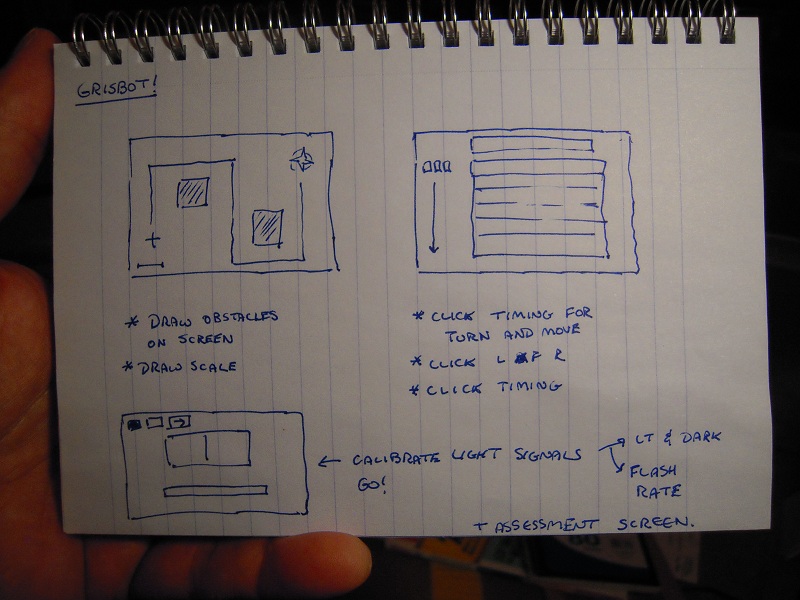 GRISBOT!
* DRAW OBSTACLES
ON SCREEN
* DRAW SCALE
* CLICK TIMING FOR
TURN AND MOVE
* CLICK L F R
* CLICK TIMING
← CALIBRATE LIGHT SIGNALS
GO!
LT & DARK
FLASH
RATE
+ ASSESSMENT SCREEN.